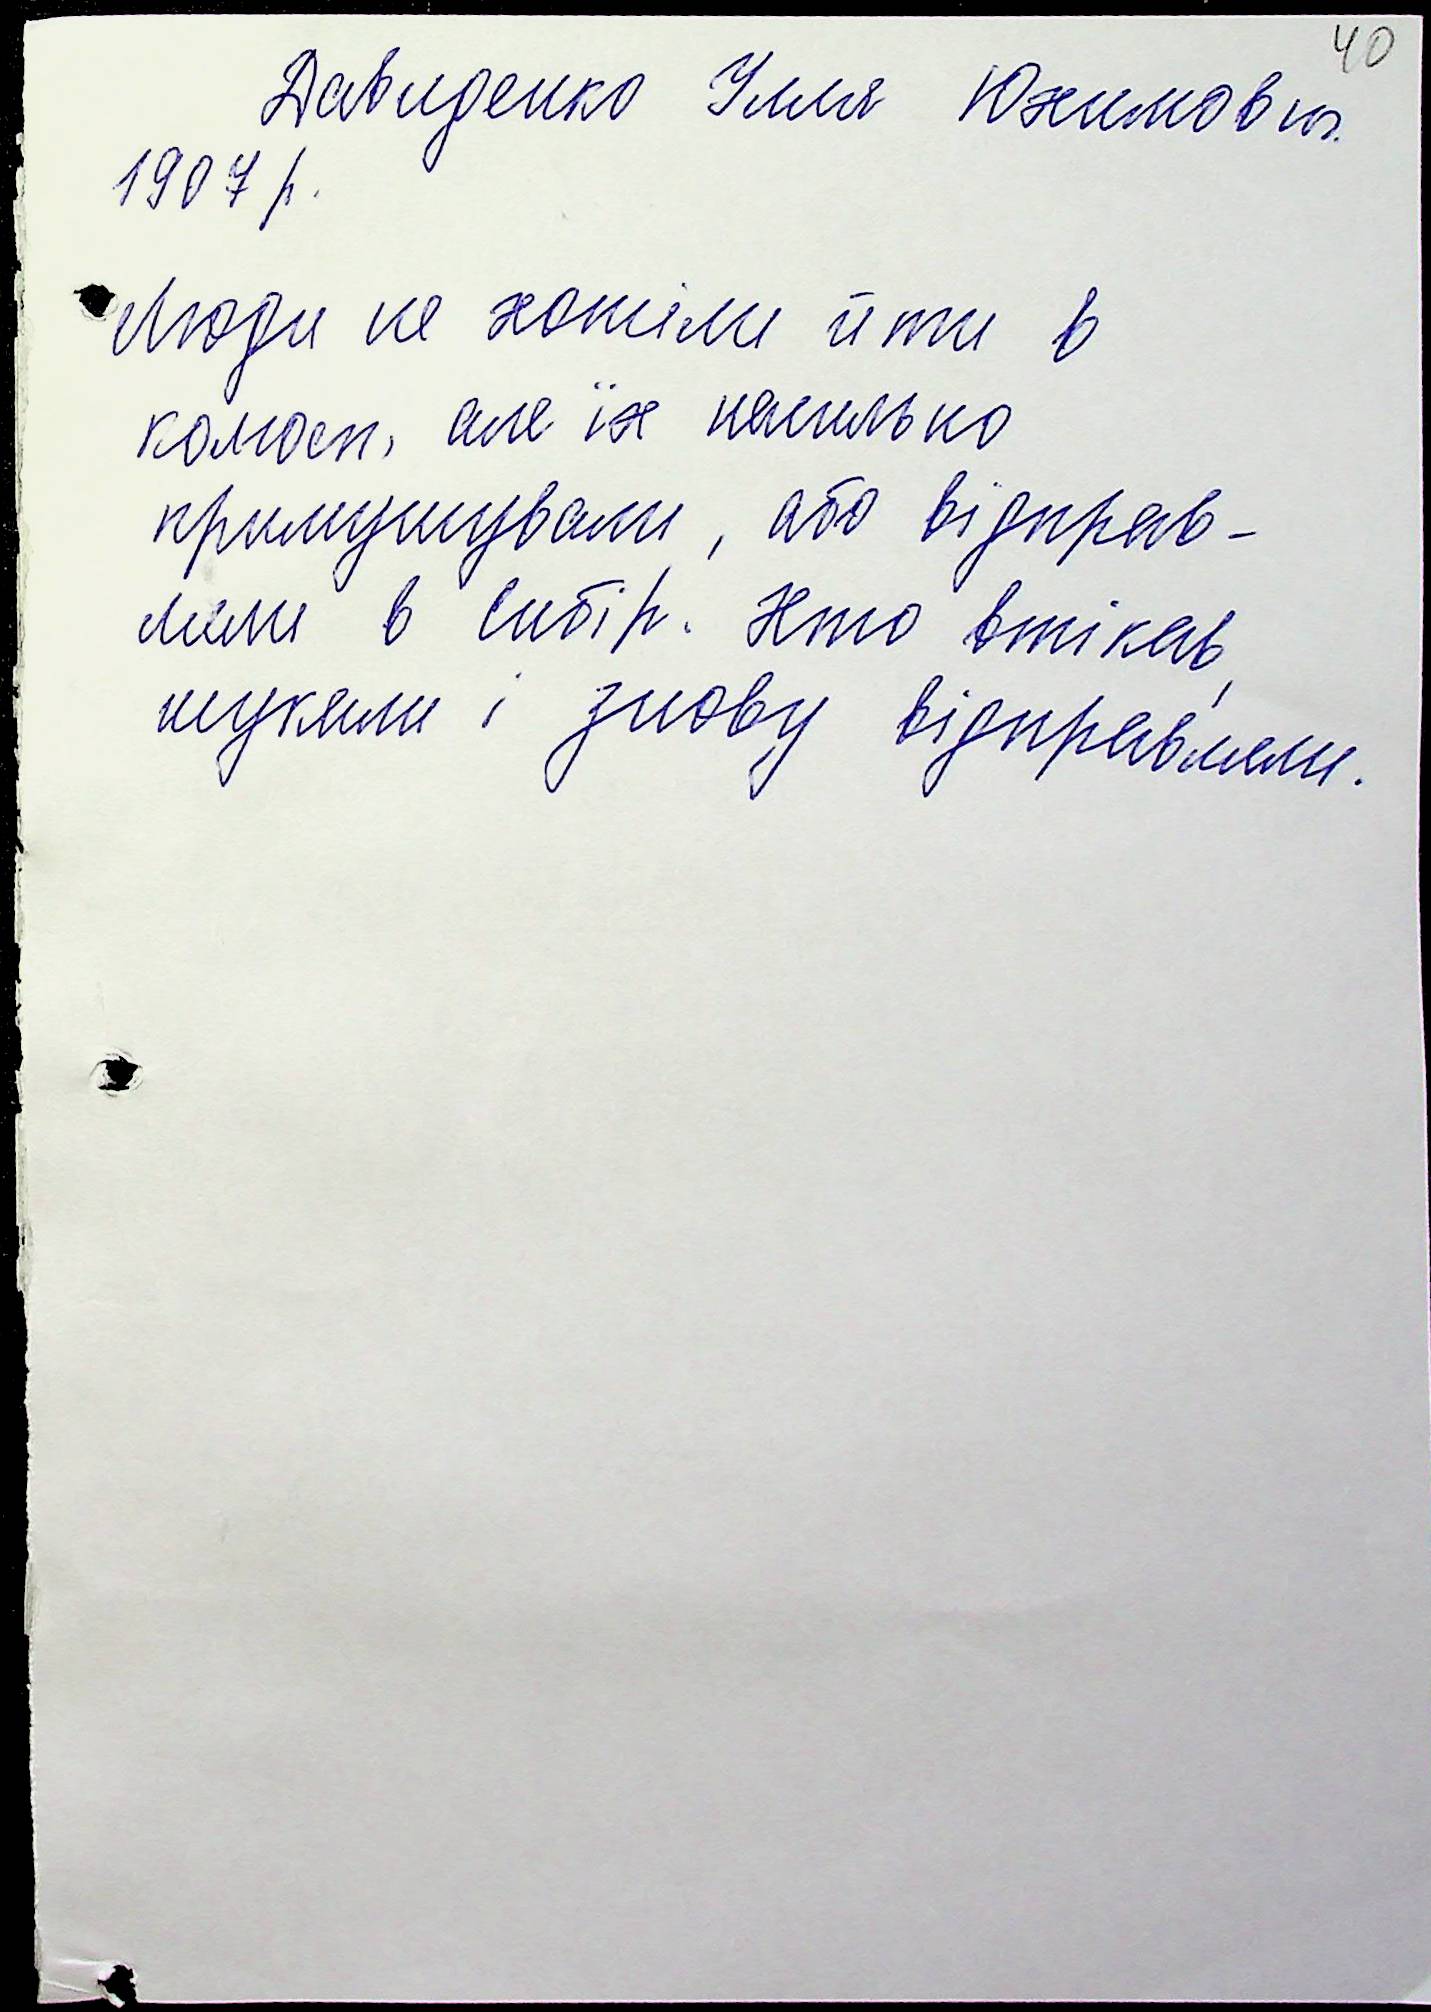 40
Давиденко Уля Юхимовна
1907 р.
Люди не хотіли йти в
колгосп, але їх насильно
примушували, або відправ-
ляли в Сибір. Хто втікав,
шукали і знову відправляли.